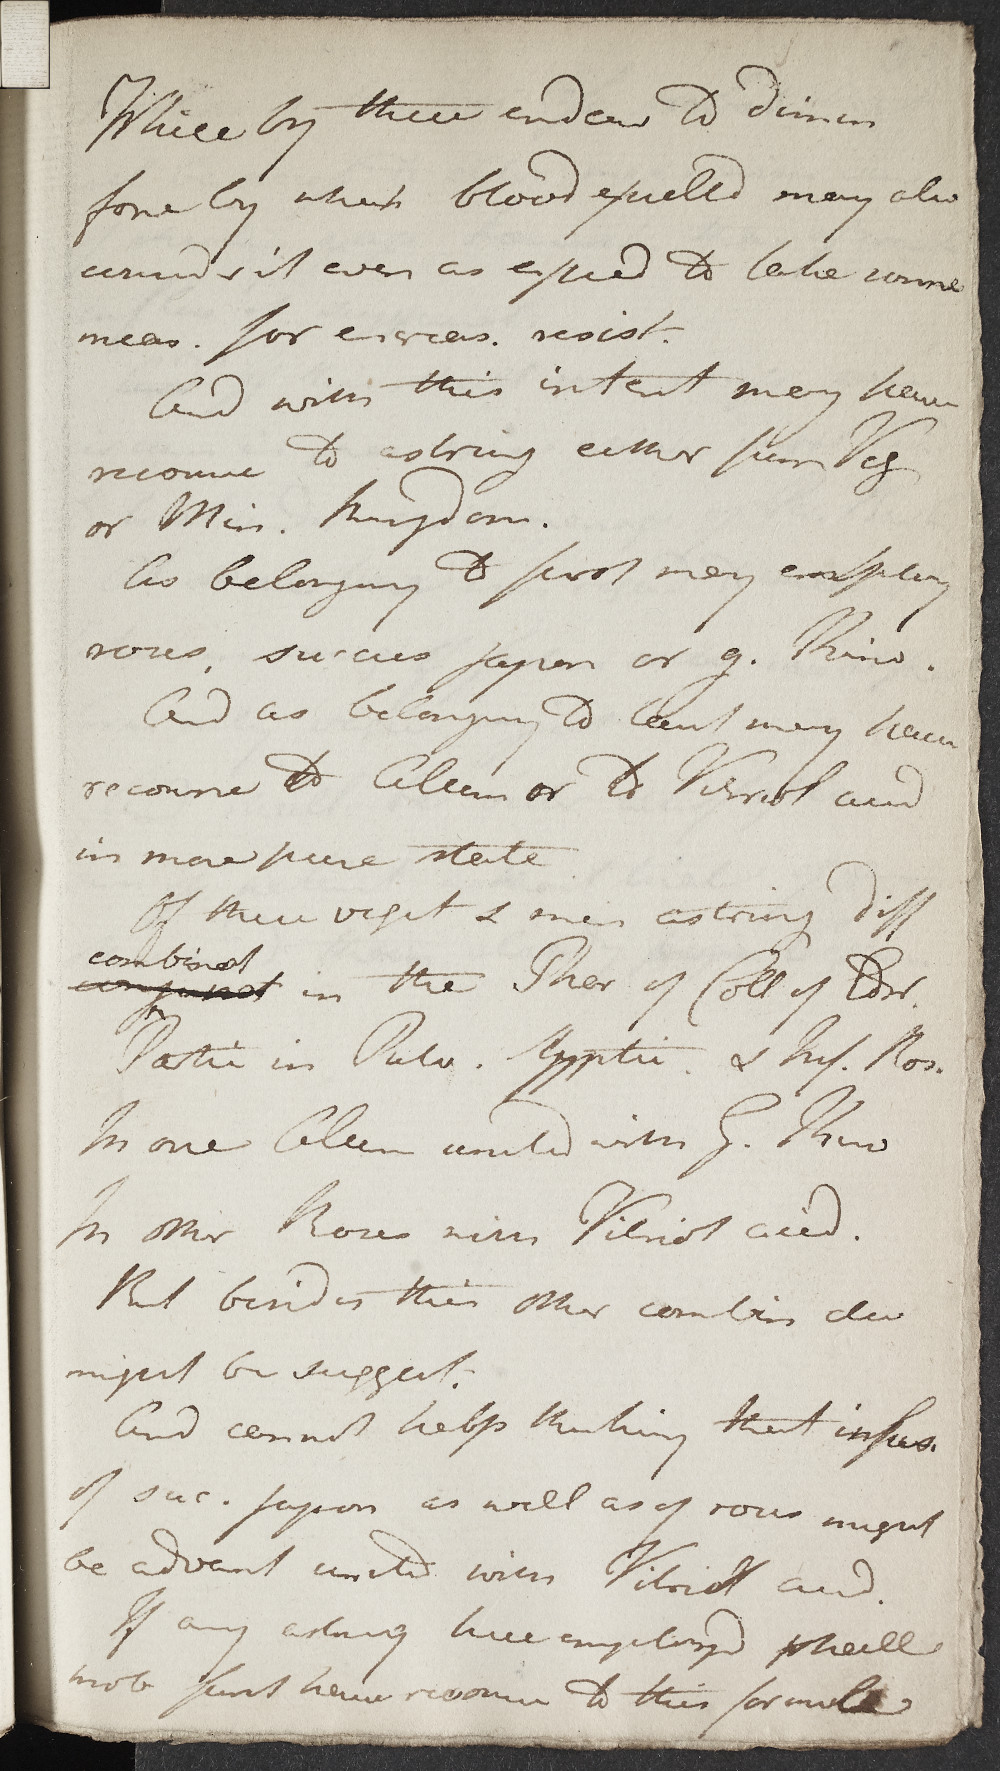 While by these endeav to dimin
force by which blood expelld may also
consider it even as exped to take some
meas. for encreas. resist.
And with this intent may have
recourse to astring either from Veg
or Min. Kingdom.
As belonging to first may employ
roses, succus japon or g. Kino.
And as belonging to last may have
recourse to Alum or to Vitriol acid
in more pure state
Of these veget & min astring diff
combinat
conjunct in the Phar of Coll of Edin.
Partic in Pulv. Styptic. & Inf. Ros.
In one Alum united with G. Kino
In other Roses with Vitriol acid.
But besides this other combin also
might be suggest.
And cannot help thinking that infus.
of suc. japon as well as of roses might
be advant united with Vitriol acid.
If any astring here employd shall
most first have recourse to this formula